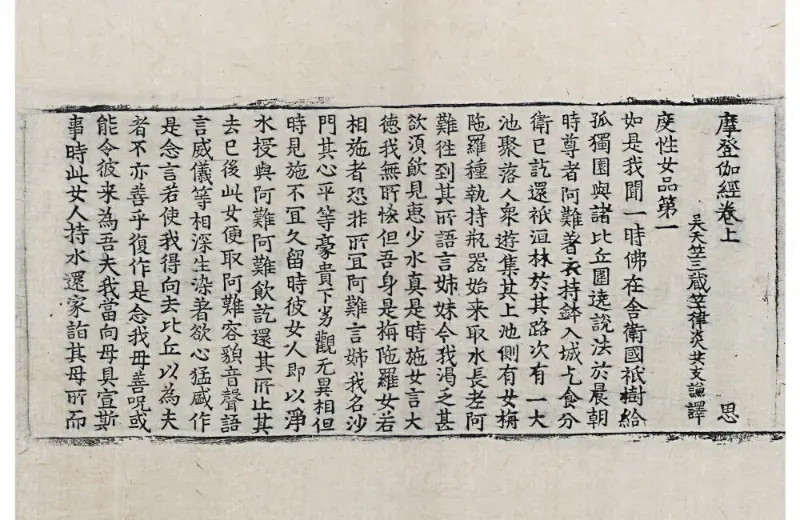 摩登伽經卷上 思
吳天竺三蔵竺律炎共支謙譯
度性女品第一
如是我聞一時佛在舍衛國祇樹給
孤獨園與諸比丘圍遶說法於晨朝
時尊者阿難著衣持鉢入城乞食分
衛已訖還祇洹林於其路次有一大
池聚落人衆遊集其上池側有女栴
陁羅種執持瓶器始来取水長老阿
難徃到其所語言姊妹今我渴乏甚
欲湏飲見惠少水真是時施女言大
德我無所恡但吾身是栴陁羅女若
相施者恐非所宜阿難言姊我名沙
門其心平等豪貴下劣觀无異相但
時見施不宜久留時彼女人即以淨
水授與阿難阿難飲訖還其所止其
去已後此女便取阿難容貌音聲語
言威儀等相深生染著欲心猛盛作
是念言若使我得向去比丘以為夫
者不亦善乎復作是念我母善呪或
能令彼来為吾夫我當向母具宣斯
事時此女人持水還家詣其母所而